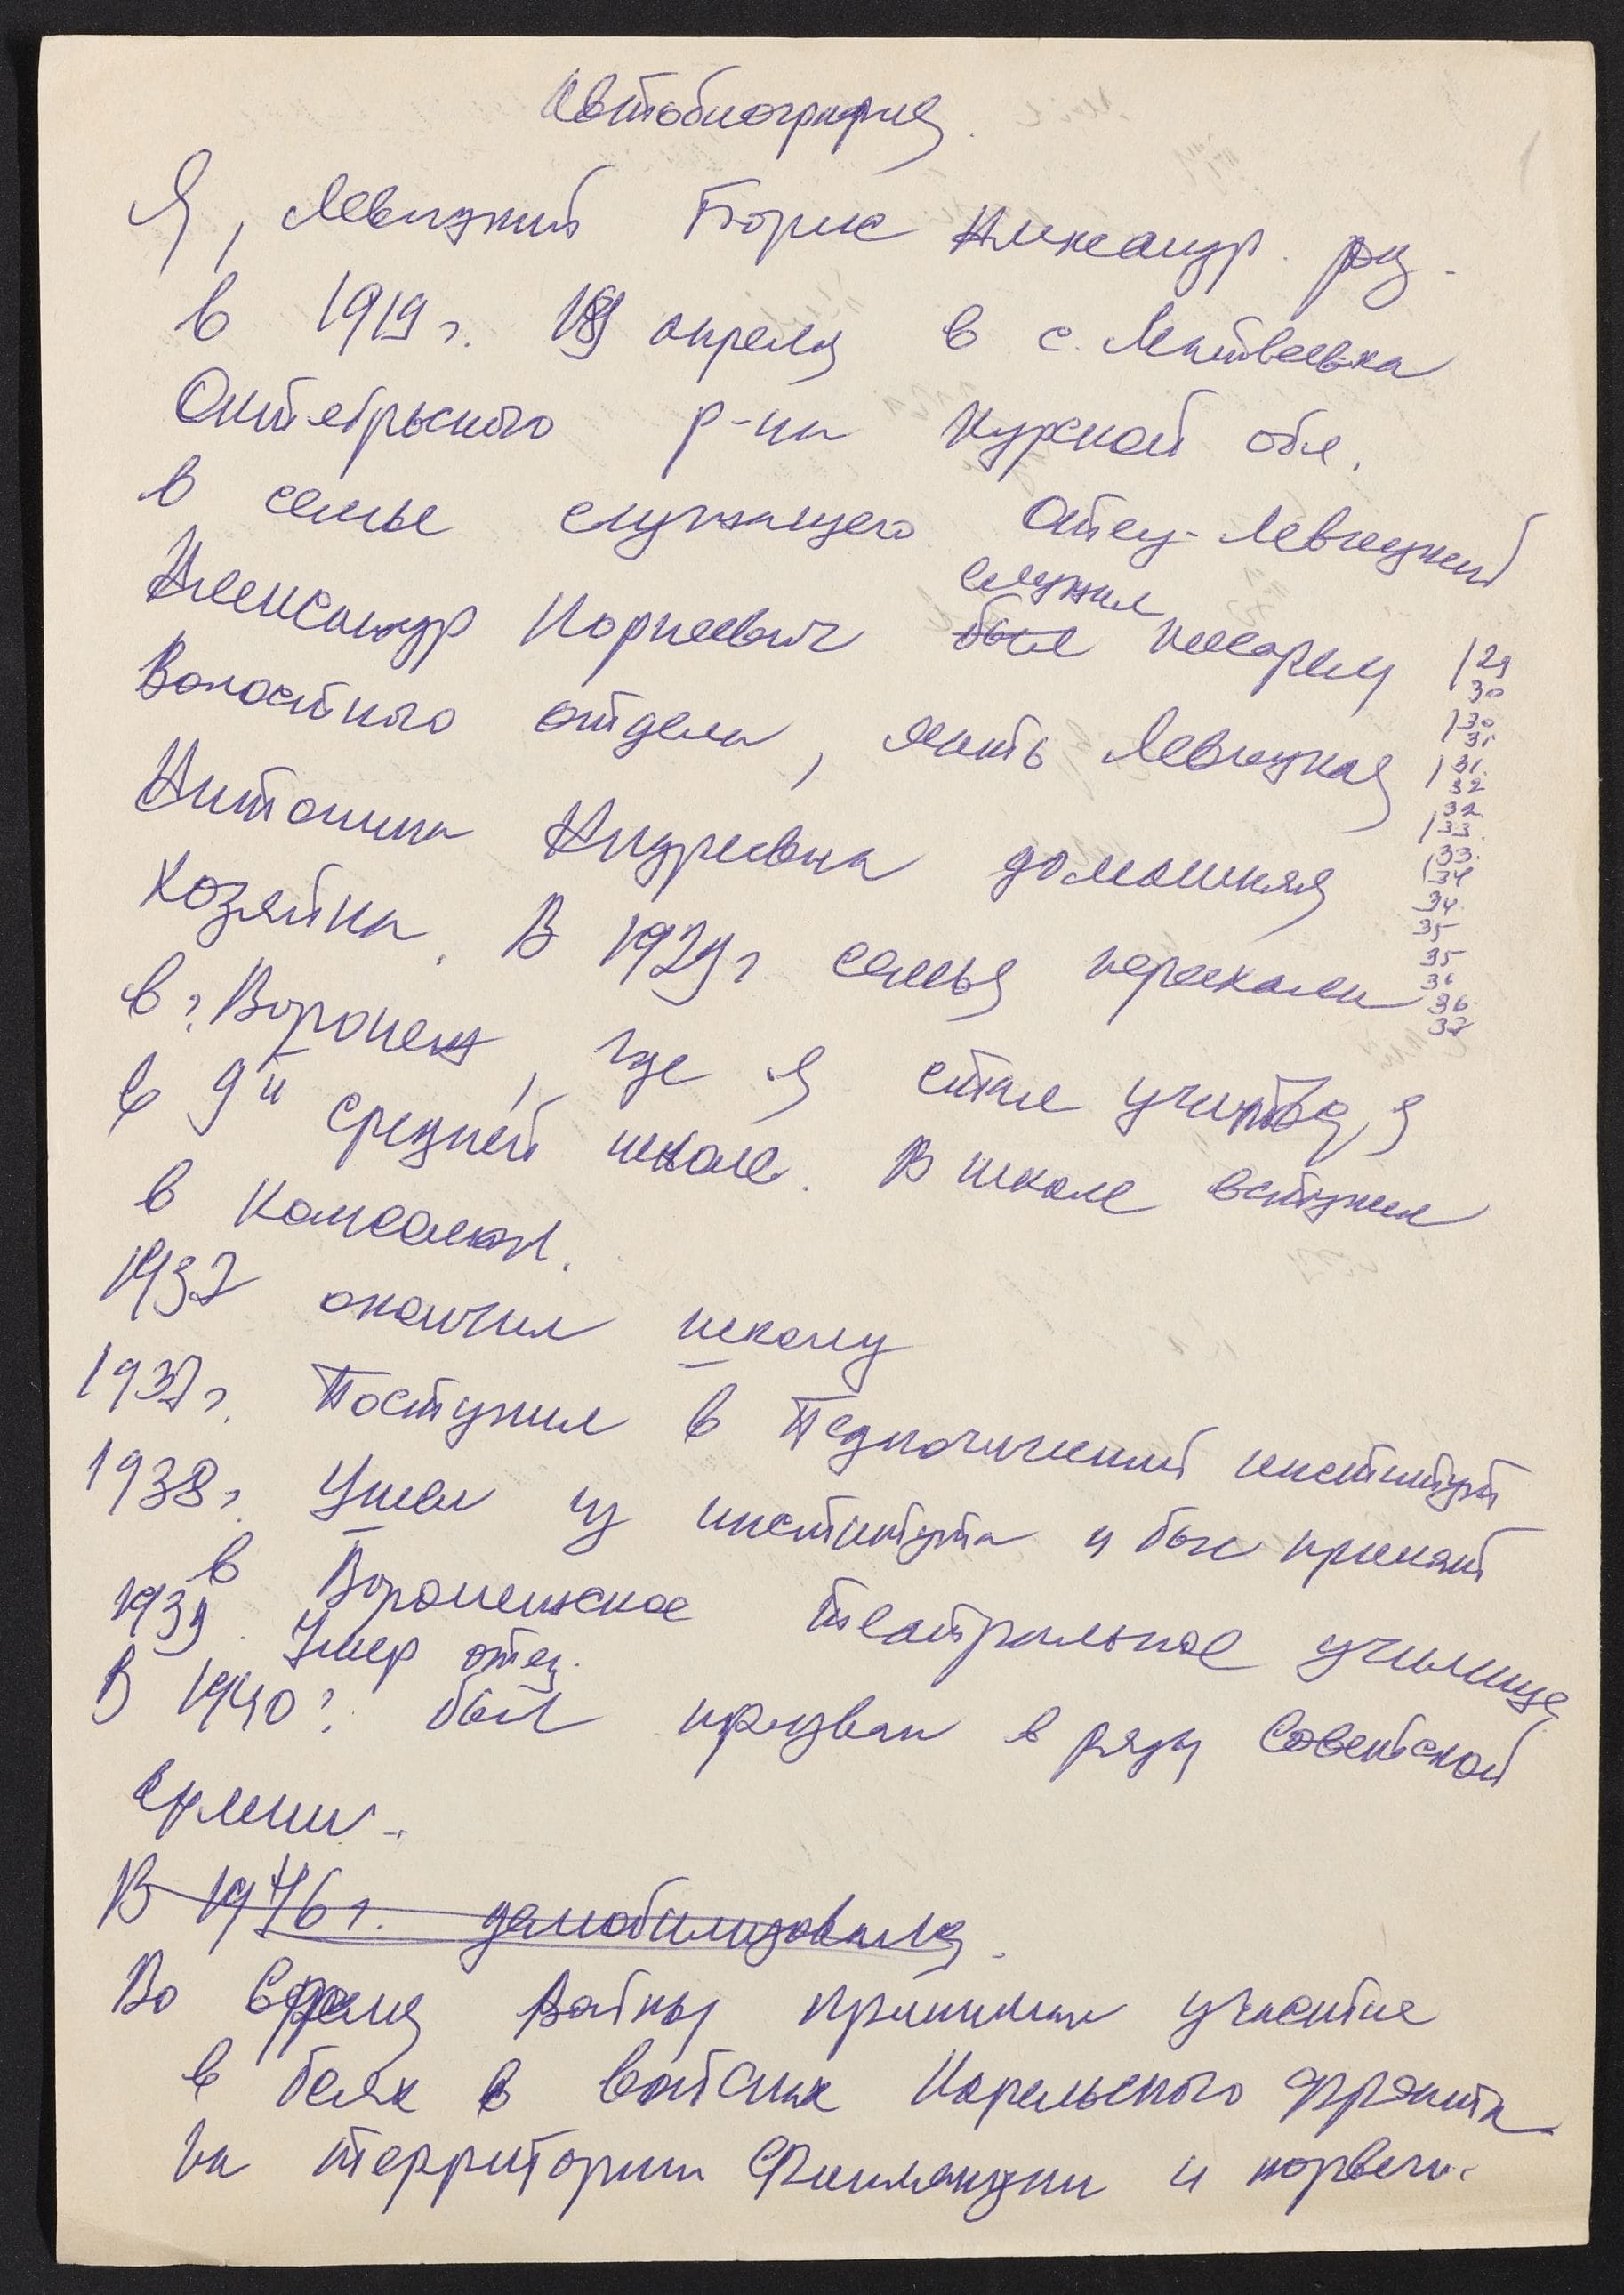 Автобиография.
Я, Левицкий Борис Александр.
в 1919 г. апреля в с. Матвеевка
Октябрьского р-на Курской обл.
в семье служащего. Отец - Левицкий
служил
Александр Корнеевич был писарем
Волостного отдела, мать Левицкая
Антонина Андреевна домашняя
хозяйка. В 1929 г. семья переехала
в г. Воронеж, где я стал учиться
в 9й средней школе. В школе вступил
в Комсомол.
29
30
30
31
31
32
32
33
33
34
34
35
35
36
36
37
1937 окончил школу
1937 г. Поступил в Педагогический институт
1938 г. Ушел из института и был принят
в Воронежское театральное училище
1939. Умер отец.
В 1940 г. был призван в ряды Советской
Армии.
В 1946 г. демобилизовался.
Во время войны принимал участие
в боях в войсках Карельского фронта
на территории Финляндии и Норвеги.